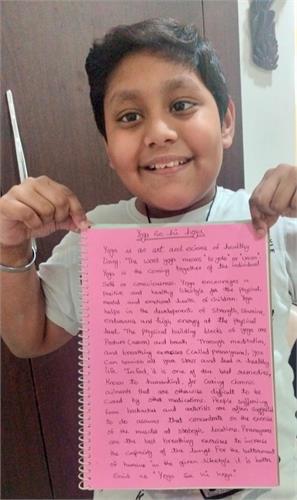 Yoga Se hi hoga
Yoga is an art and science of healthy
living. The word yoga means "to yoke" or "union".
Yoga is the coming together of the individual
Self or consciousness. Yoga encourages a
positive and healthy lifestyle for the physical,
mental and emotional health of children. Yoga
helps in the development of strength, stamina
endurance and high energy at the physical
level. The physical building blocks of yoga are
Posture (asana) and breath. Through meditation,
and breathing exercises (called pranayama), you
can banish all your stress and lead a healthy
life. Infact, it is one of the best remedies,
known to humankind, for curing chronic
ailments that are otherwise difficult to be
cured by other medications. People suffering
from backache and arthritis are often suggested
to do asanas that concentrate on the exercise
of the muscles at strategic locations. Pranayama
are the best breathing exercises to increase
the capacity of the lungs. For the betterment
of humans in the given lifestyle it is better
Said as "Yoga Se hi hoga".